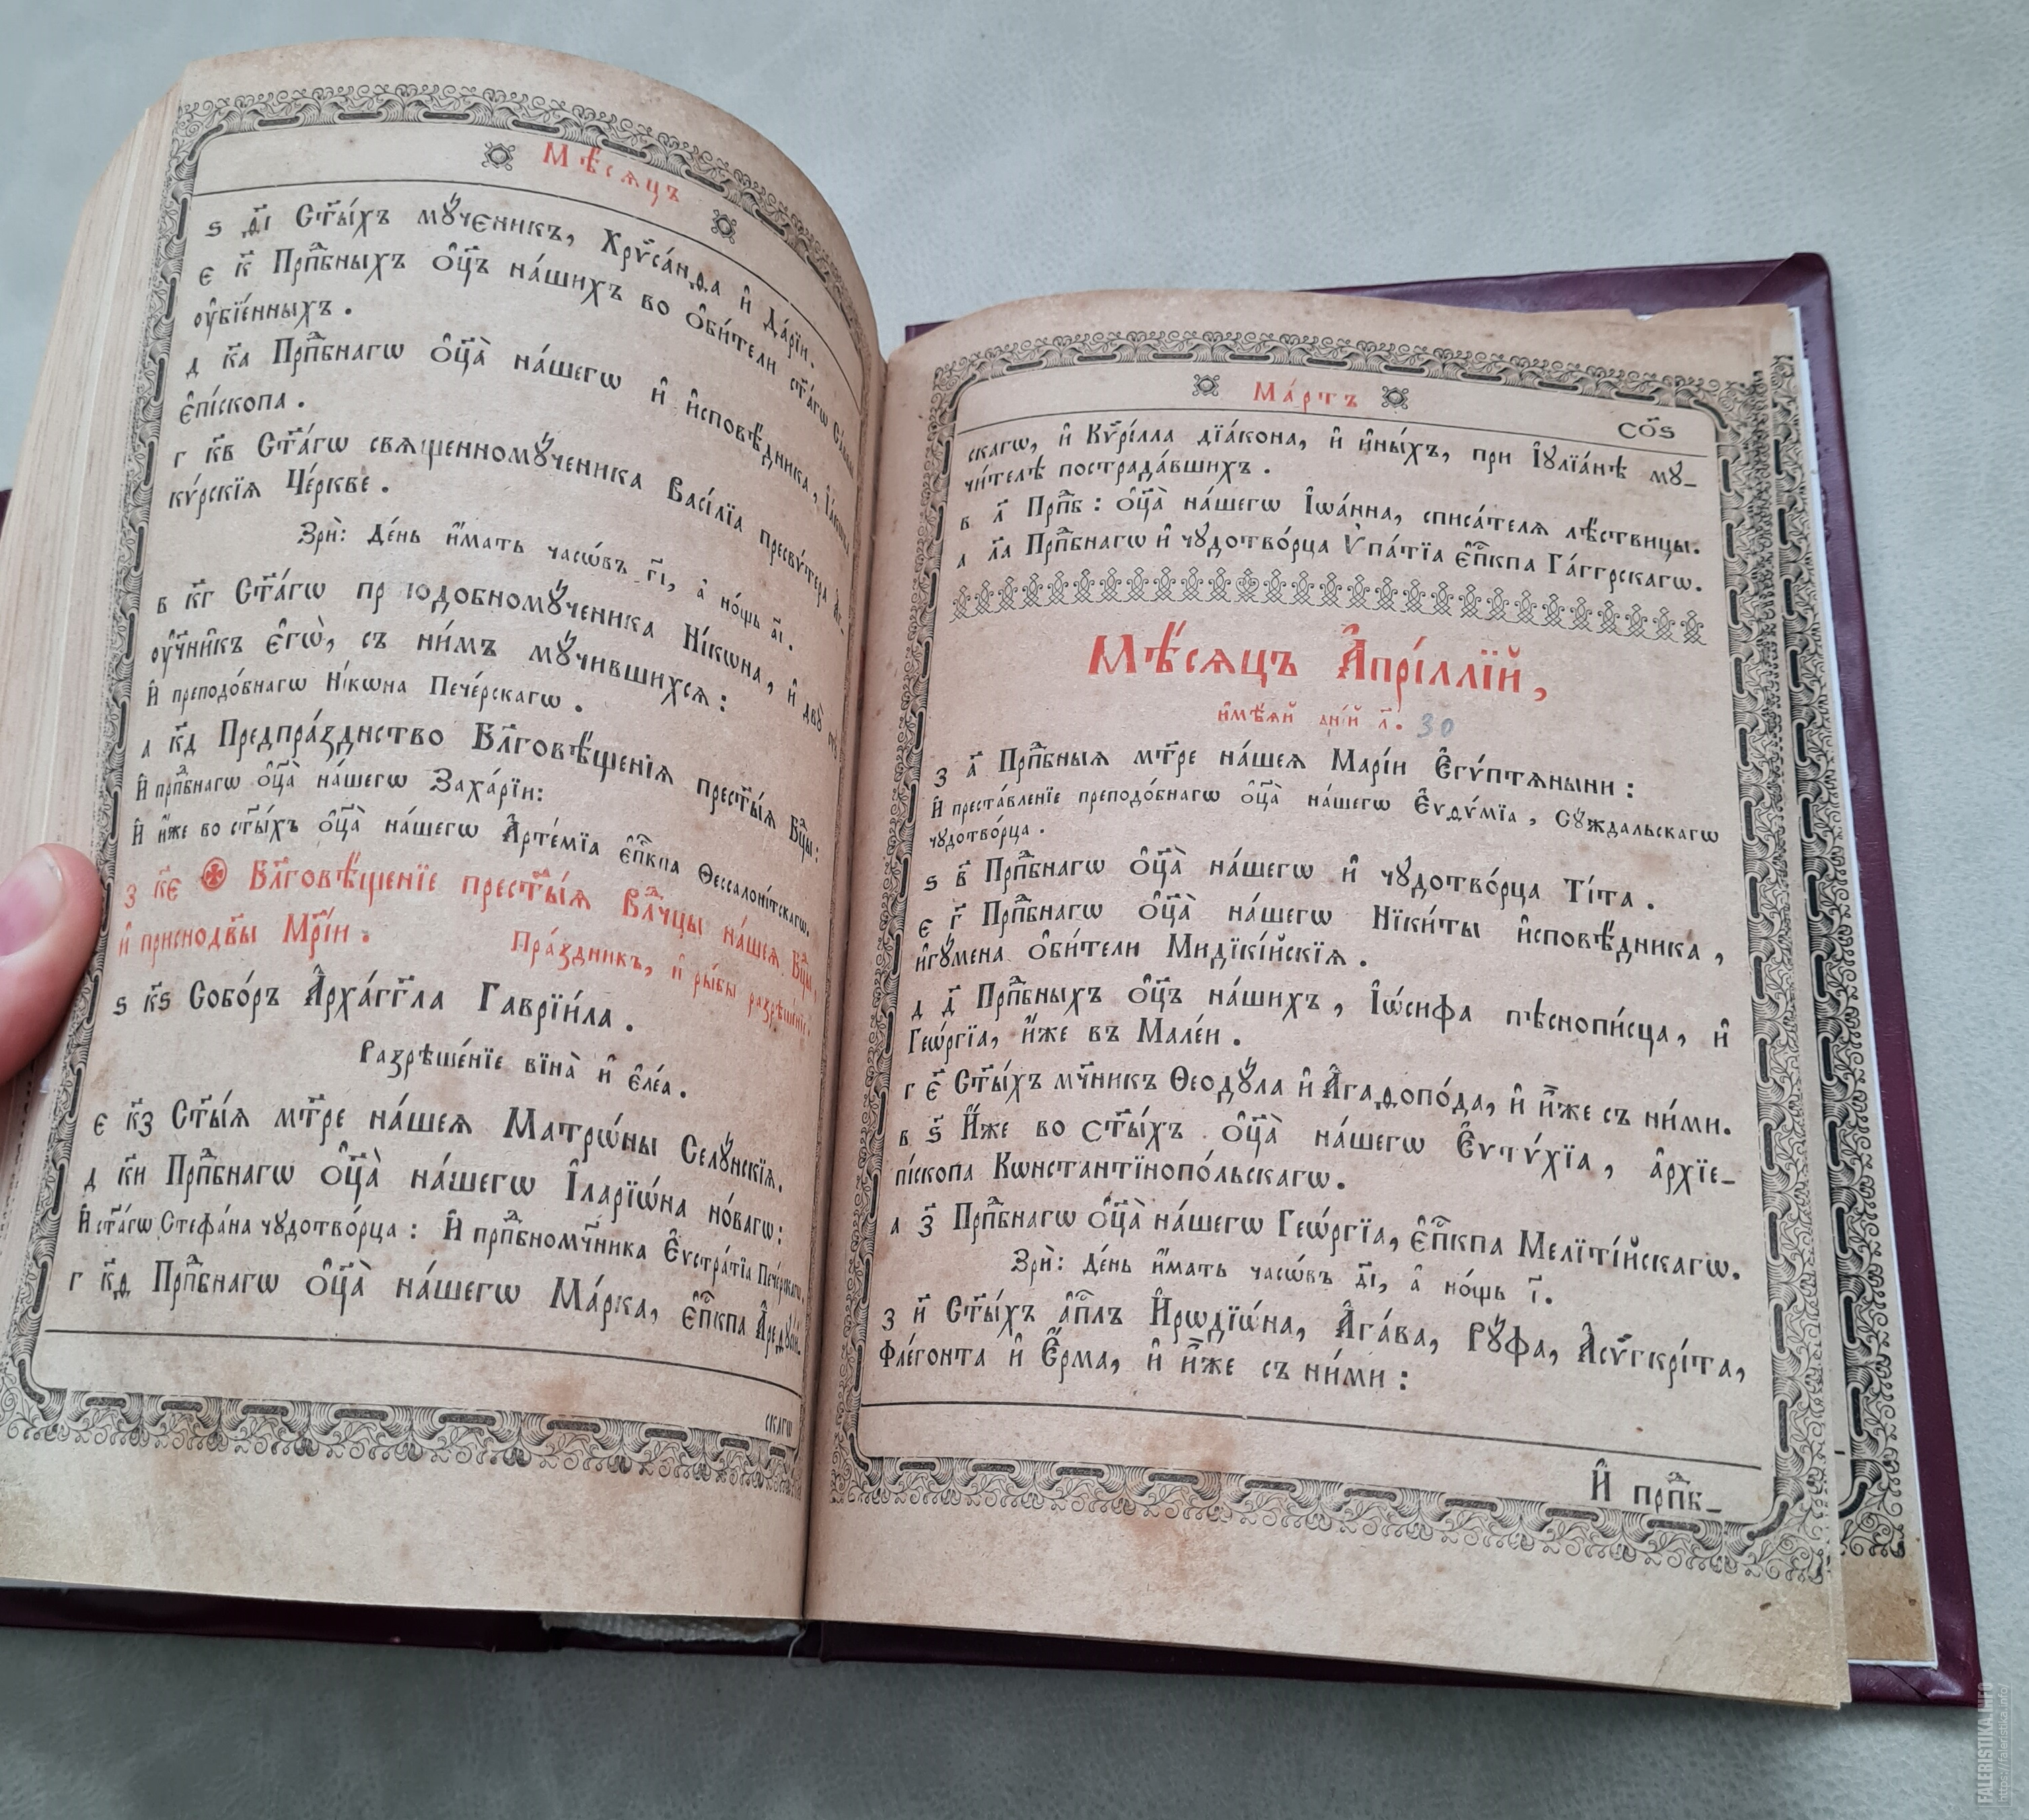 Мѣ́сяцъ
ѕ ѳ҃і Ст҃ы́хъ мꙋ́ченикъ, Хрѵса́нѳа и҆ Да́рїи.
є к҃ Прпⷣбныхъ ѻ҆ц҃ъ на́шихъ во ѻ҆би́тели ст҃а́гѡ Са́ввы
ᲂу҆бїе́нныхъ.
д к҃а Прпⷣбнагѡ ѻ҆ц҃а̀ на́шегѡ и҆ и҆сповѣ́дника, І҆а́кѡва
є҆пі́скопа.
г к҃в Ст҃а́гѡ священномꙋ́ченика Васі́лїа пресвѵ́тера А҆г-
кѵ́рскїѧ Це́ркве.
Зрѝ: Де́нь и҆́мать часѡ́въ г҃і, а҆ но́щь а҃і.
в к҃г Ст҃а́гѡ пр подобномꙋ́ченика Ні́кѡна, и҆ двꙋ̀
ᲂу҆чн҃и̑къ є҆гѡ̀, съ ни́мъ мꙋ́чившихсѧ:
И҆ преподо́бнагѡ Ні́кѡна Пече́рскагѡ.
а к҃д Предпра́зднство Бл҃говѣ́щенїѧ прест҃ы́ѧ Бцⷣы:
И҆ прпⷣбнагѡ ѻ҆ц҃а̀ на́шегѡ Заха́рїи:
И҆ и҆́же во ст҃ы́хъ ѻ҆ц҃а̀ на́шегѡ А҆рте́мїа є҆пⷭ҇кпа Ѳессалоні́тскагѡ.
з к҃є Бл҃говѣ́щенїе прест҃ы́ѧ Влⷣчцы на́шеѧ Бцⷣы,
и҆ приснодв҃ы Мр҃і́и. Пра́здникъ, и҆ ры́бы разрѣше́нїе:
ѕ к҃ѕ Собо́ръ А҆рха́гг҃ла Гаврїи́ла.
Разрѣше́нїе вїна̀ и҆ є҆ле́а.
є к҃з Ст҃ы́ѧ мт҃ре на́шеѧ Матрѡ́ны Селꙋ́нскїѧ.
д к҃и Прпⷣбнагѡ ѻ҆ц҃а̀ на́шегѡ І҆ларїѡ́на но́вагѡ:
И҆ ст҃а́гѡ Стефа́на чꙋдотво́рца: И҆ прпⷣбномч҃ника Є҆ѵстра́тїа Пече́рскагѡ.
г к҃ѳ Прпⷣбнагѡ ѻ҆ц҃а̀ на́шегѡ Ма́рка, є҆пⷭ҇кпа А҆редꙋ́сїй-
скагѡ
Ма́ртъ
со҃ѕ
скагѡ, и҆ Кѷрі́лла дїа́кона, и҆ и҆ны́хъ, при І҆ꙋлїа́нѣ мꙋ-
чи́телѣ пострада́вшихъ.
в л҃ Прпⷣб: ѻ҆ц҃а̀ на́шегѡ І҆ѡа́нна, списа́телѧ лѣ́ствицы.
а л҃а Прпⷣбнагѡ и҆ чꙋдотво́рца Ѵ҆па́тїа є҆пⷭ҇кпа Га́ггрскагѡ.
Мѣ́сѧцъ А҆прі́ллїй,
и҆мѣ́ѧй дні́й л҃. 30
з а҃ Прпⷣбныѧ мт҃ре на́шеѧ Марі́и Є҆гѵ́птѧныни:
И҆ преста́вленїе преподо́бнагѡ ѻ҆ц҃а̀ на́шегѡ Є҆ѵѳѵ́мїа, Сꙋ́ждальскагѡ
чꙋдотво́рца.
ѕ в҃ Прпⷣбнагѡ ѻ҆ц҃а̀ на́шегѡ и҆ чꙋдотво́рца Ті́та.
є г҃ Прпⷣбнагѡ ѻ҆ц҃а̀ на́шегѡ Нїки́ты и҆сповѣ́дника,
и҆гꙋ́мена ѻ҆би́тели Мидїкі́йскїѧ.
д д҃ Прпⷣбныхъ ѻ҆ц҃ъ на́шихъ, І҆ѡ́сифа пѣснопи́сца, и҆
Геѡ́ргїа, и҆́же въ Мале́и.
г є҃ Ст҃ы́хъ мч҃никъ Ѳеодꙋ́ла и҆ А҆гаѳопо́да, и҆ и҆̀же съ ни́ми.
в ѕ҃ И҆́же во ст҃ы́хъ ѻ҆ц҃а̀ на́шегѡ Є҆ѵтѵ́хїа, а҆рхїе-
пі́скопа Кѡнстантїнопо́льскагѡ.
а з҃ Прпⷣбнагѡ ѻ҆ц҃а̀ на́шегѡ Геѡ́ргїа, є҆пⷭ҇кпа Мелїті́йскагѡ.
Зрѝ: Де́нь и҆́мать часѡ́въ д҃і, а҆ но́щь і҃.
з и҃ Ст҃ы́хъ а҆пⷭ҇лъ И҆рѡдїѡ́на, А҆га́ва, Рꙋ́фа, А҆сѷгкрі́та,
Фле́гонта и҆ Є҆́рма, и҆ и҆̀же съ ни́ми:
И҆ прпⷣб-
FALERISTIKA.INFO
https://faleristika.info/